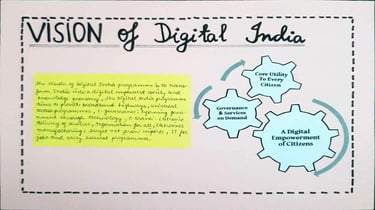 VISION of Digital India
The Vision of digital India programme is to trans-
form India into a digital empowered society and
knowledge economy. The Digital India programme
aims to provide broadband highways, universal
access programmes, e-governance: Reforming gover
nment through technology, e kranti - Electronic
delivery of services, Information for all, Electronics
manufacturing: Target net zero imports, IT for
jobs and early harvest programmes.
Core Utility
To Every
Citizen
Governance
& Services
on Demand
A Digital
Empowerment
of Citizens